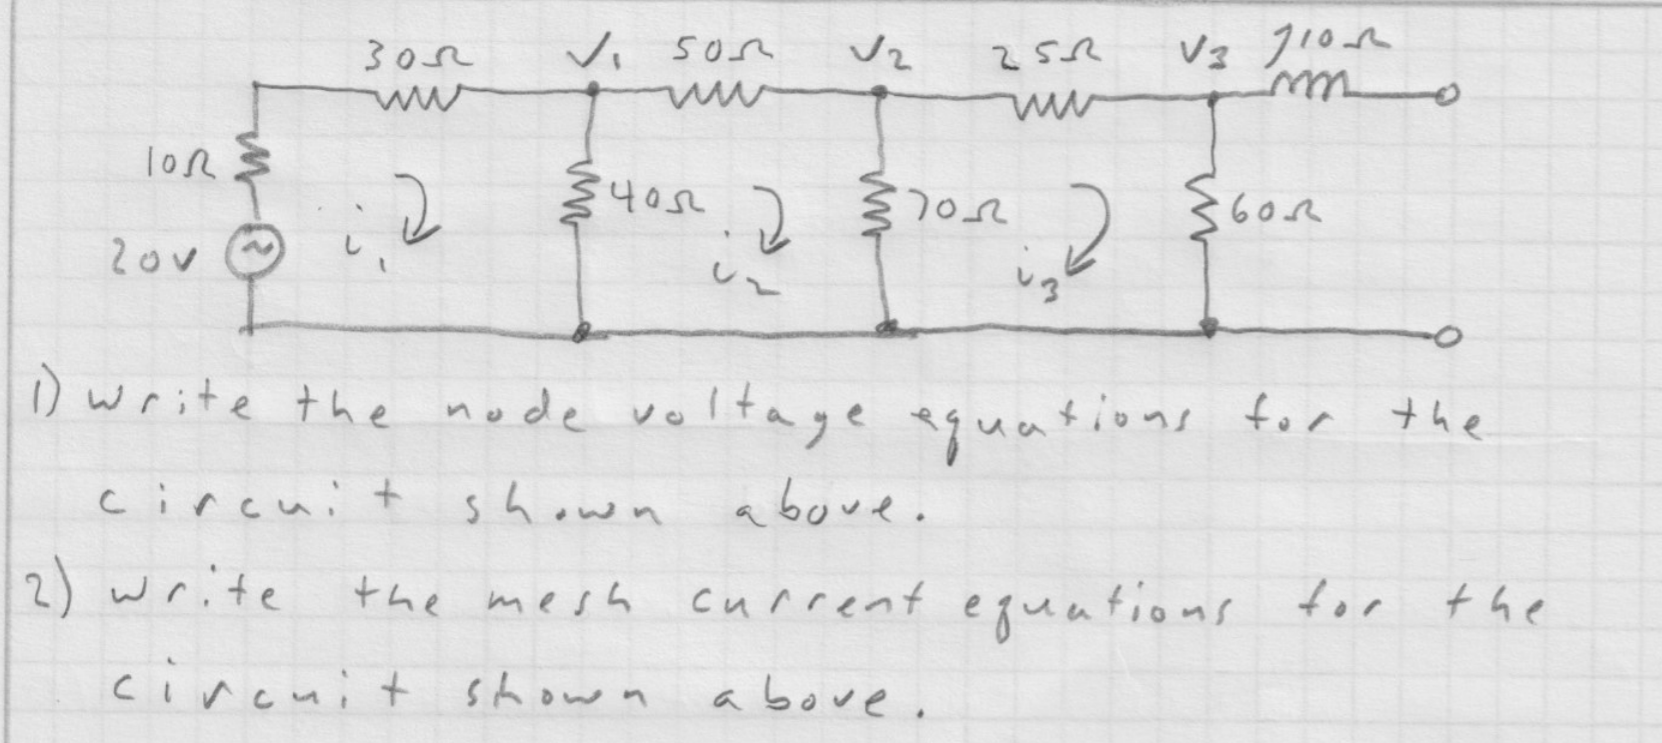 30Ω V₁ 50Ω V₂ 25Ω V₃ j10Ω
10Ω 40Ω 70Ω 60Ω
20V i₁ i₂ i₃
1) Write the node voltage equations for the
circuit shown above.
2) Write the mesh current equations for the
circuit shown above.